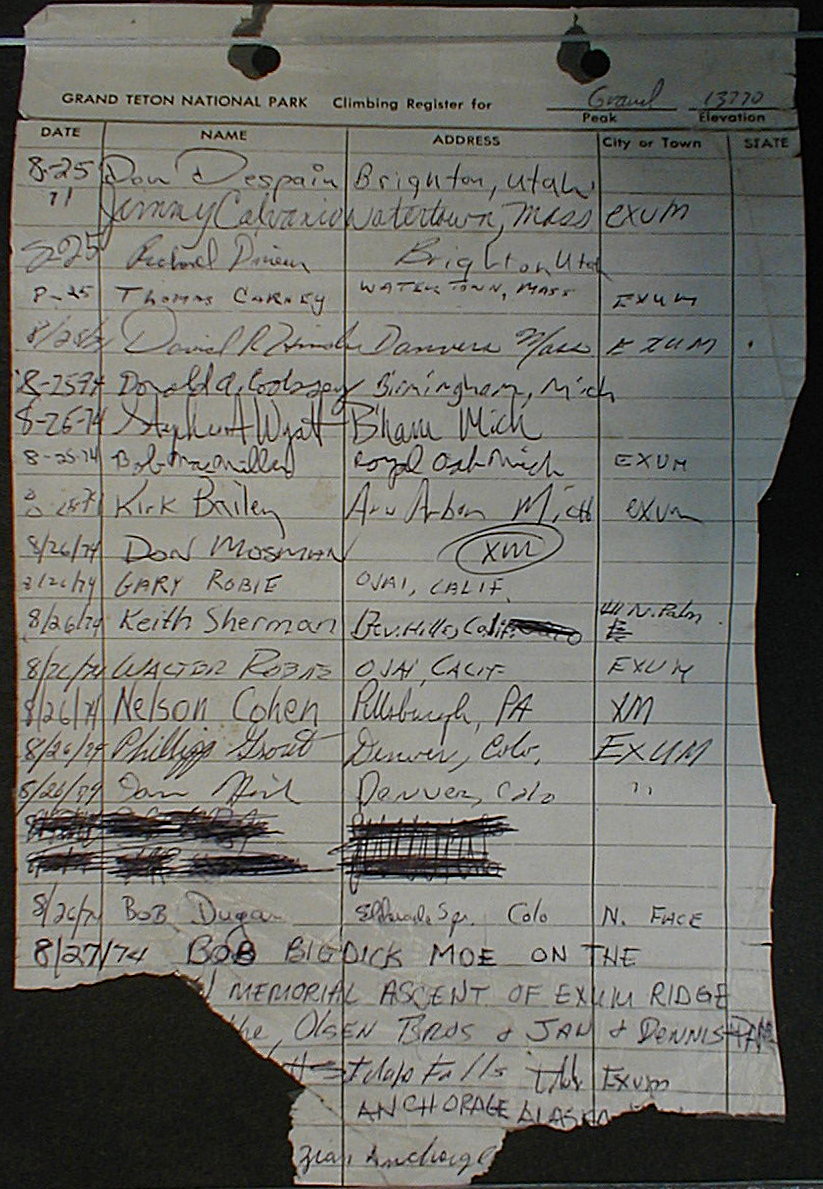 GRAND TETON NATIONAL PARK Climbing Register for Grand 13770
Peak Elevation
DATE NAME ADDRESS City or Town STATE
8-25 Don Despain Brighton, Utah
71 Jimmy Calvario Watertown, Mass EXUM
825 Richard Brighton Utah
8-25 THOMAS CARNEY WATERTOWN, MASS EXUM
David R Danvers Mass EXUM
8-25 74 Donald A. Birmingham, Mich
8-26-74 Wyatt B'ham Mich
8-25-74 Bob MacMillan Royal Oak Mich EXUM
Kirk Bailey Ann Arbor Mich exum
8/26/74 DON MOSMAN XM
8/26/74 GARY ROBIE OJAI, CALIF.
8/26/74 Keith Sherman Bev. Hills, Calif. N. Palm
8/26/74 WALTER OJAI, CALIF EXUM
8/26/74 Nelson Cohen Pittsburgh, PA XM
8/26/74 Phillips Grout Denver, Colo, EXUM
8/26/74 Denver, Colo "
8/26/74 BOB Dugan Spr. Colo N. FACE
8/27/74 BOB BIGDICK MOE ON THE
MEMORIAL ASCENT OF EXUM RIDGE
the OLSEN BROS & JAN & DENNIS
Idaho Falls Exum
ANCHORAGE ALASKA
Anchorage